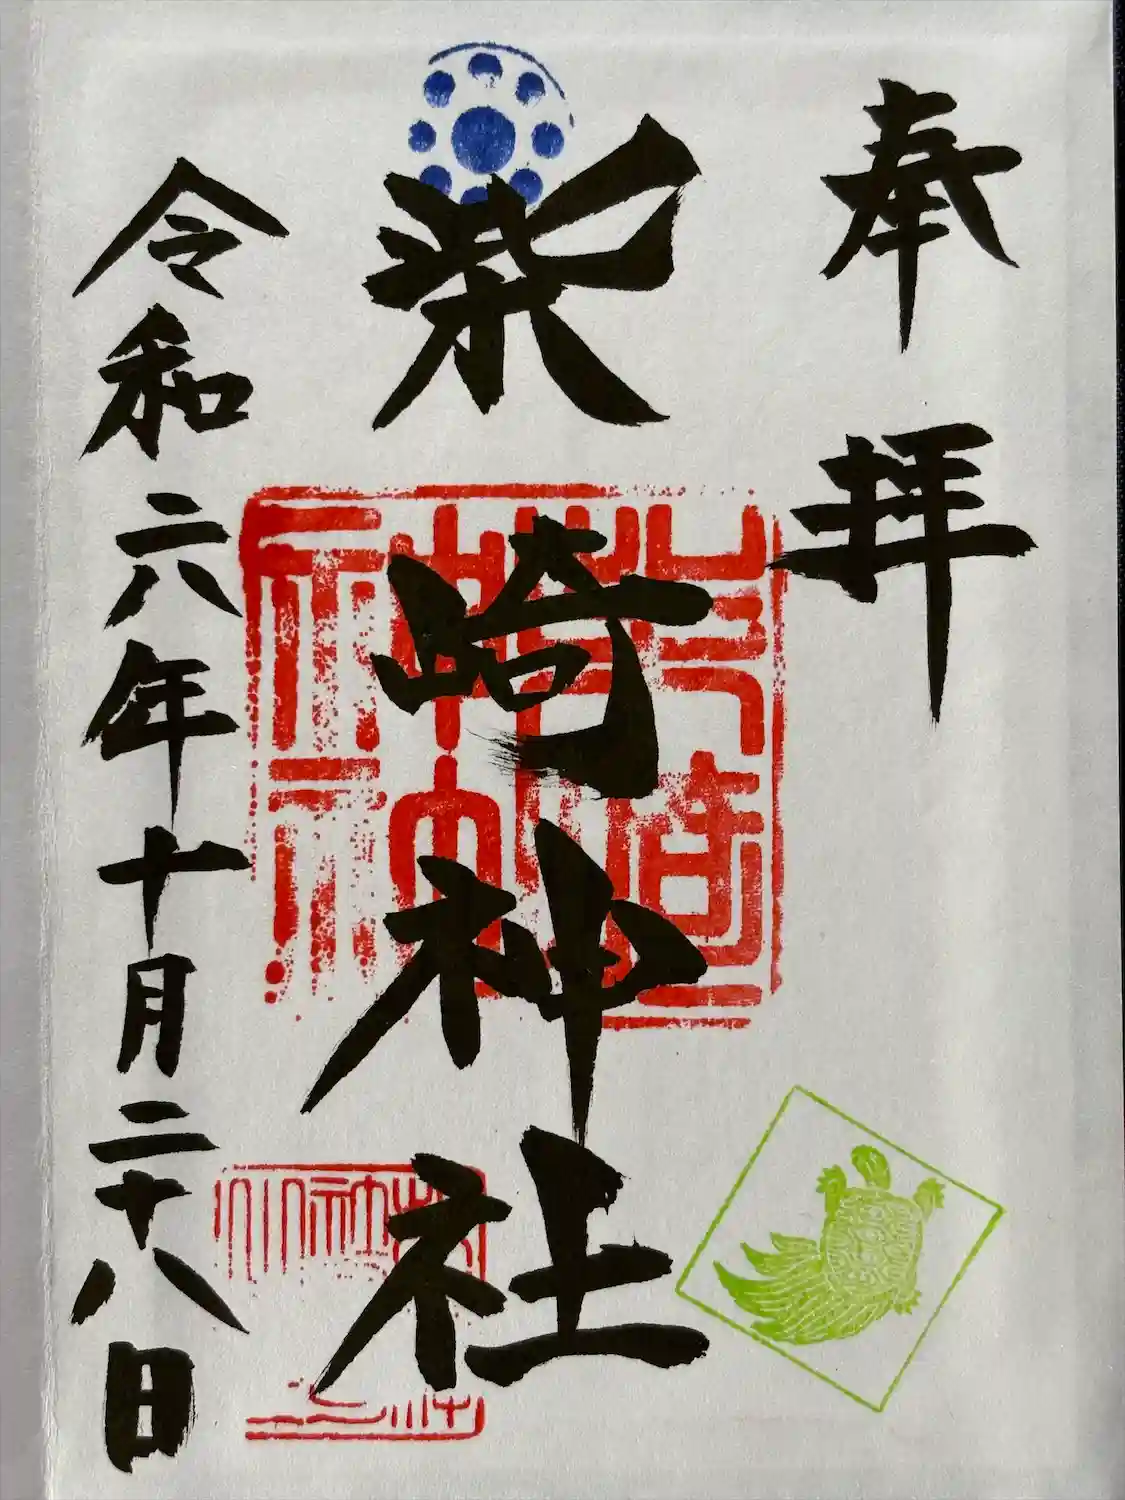 奉拝
柴崎神社
令和六年十月二十八日